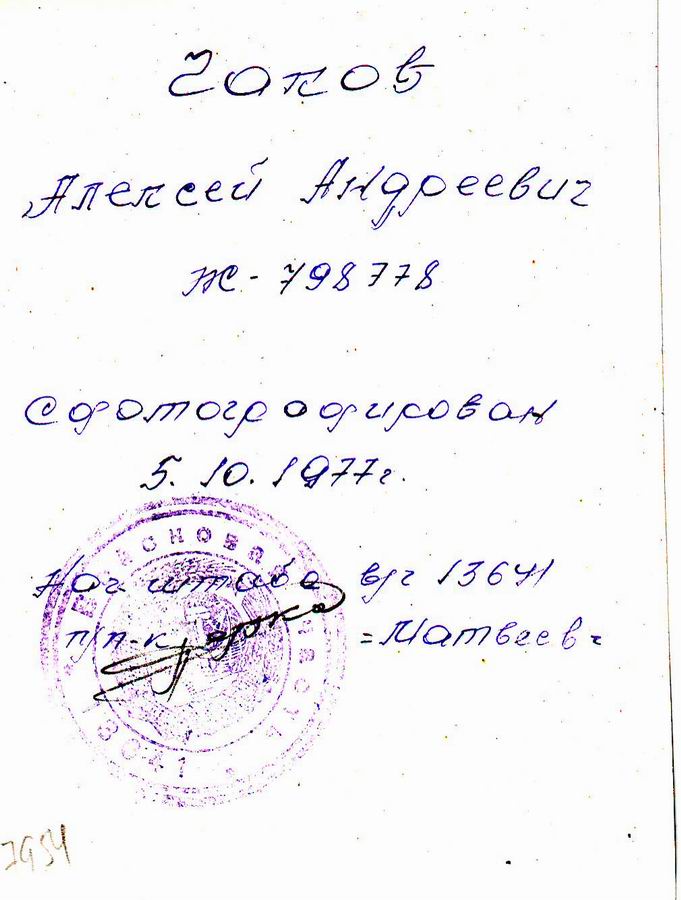 Чапов
Алексей Андреевич
Ж-798778
Сфотографирован
5.10.1977г.
Нач штаба в/ч 13641
п/п-к =Матвеев=
7954